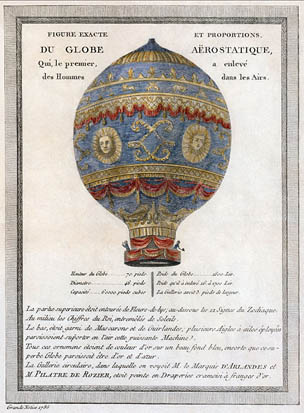 FIGURE EXACTE ET PROPORTIONS,
DU GLOBE AËROSTATIQUE,
Qui, le premier, a enlevé
des Hommes dans les Airs.
Hauteur du Globe 70 pieds
Diametre 46 pieds
Capacité 60000 pieds cubes
Poids du Globe 1600 Liv.
Poids qu'il a enlevé 16 à 1700 Liv.
La Gallerie avoit 3 pieds de largeur
La partie superieure étoit entourée de Fleurs-de-lys, au-dessous les 12 Signes du Zodiaque.
Au milieu les Chiffres du Roi, entremêlés de Soleils.
Le bas, étoit garni de Mascarons et de Guirlandes; plusieurs Aigles à ailes éployées
paroissoient supporter en l'air cette puissante Machine.
Tous ces ornemens étoient de couleur d'or sur un beau fond bleu, ensorte que ce su-
perbe Globe paroissoit être d'or et d'azur.
La Gallerie circulaire, dans laquelle on voyoit M. le Marquis D'ARLANDES et
M. PILATRE DE ROZIER, étoit peinte en Draperies cramoisi à franges d'or.